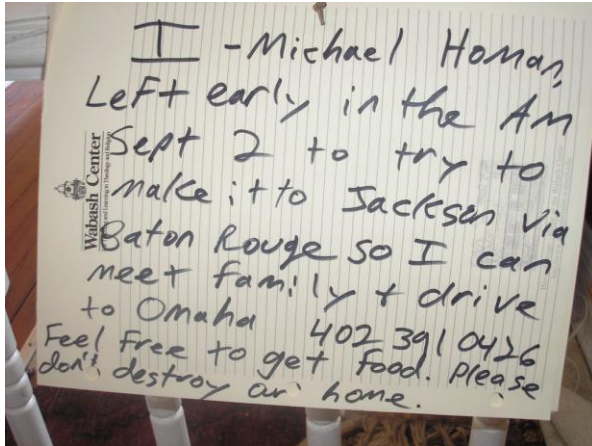 I - Michael Homan,
Left early in the AM
Sept 2 to try to
make it to Jackson via
Baton Rouge so I can
meet family + drive
to Omaha 402 391 0426
Feel free to get food. Please
don't destroy our home.
Wabash Center
Teaching and Learning in Theology and Religion